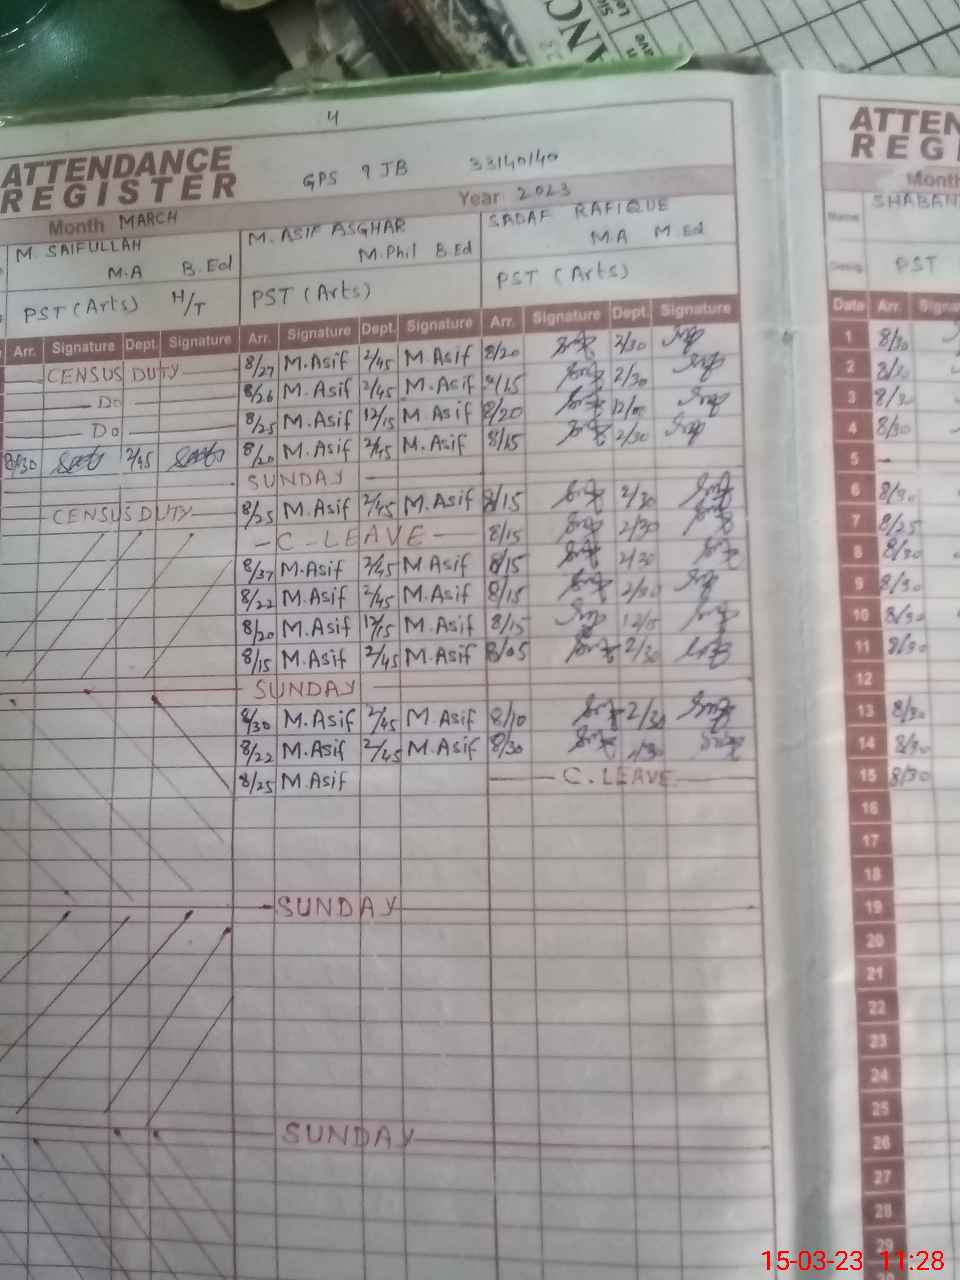 ANC
4
ATTENDANCE
REGISTER
GPS 9 JB 33140140
Month MARCH Year 2023
M. SAIFULLAH M. ASIF ASGHAR SADAF RAFIQUE
M.A B.Ed M.Phil B.Ed M.A M.Ed
PST (Arts) H/T PST (Arts) PST (Arts)
Arr. Signature Dept. Signature Arr. Signature Dept. Signature Arr. Signature Dept. Signature
CENSUS DUTY 8/27 M.Asif 2/45 M.Asif 8/20 2/30
Do 8/26 M.Asif 2/45 M.Asif 8/15 2/30
Do 8/25 M.Asif 12/15 M.Asif 8/20
8/30 2/45 8/20 M.Asif 2/45 M.Asif 8/15 2/30
SUNDAY
CENSUS DUTY 8/25 M.Asif 2/45 M.Asif 8/15 2/30
C.LEAVE 8/15 2/30
8/37 M.Asif 2/45 M.Asif 8/15 2/30
8/22 M.Asif 2/45 M.Asif 8/15 2/30
8/20 M.Asif 12/15 M.Asif 8/15
8/15 M.Asif 2/45 M.Asif 8/05 2/30
SUNDAY
8/30 M.Asif 2/45 M.Asif 8/10 2/30
8/22 M.Asif 2/45 M.Asif 8/30
8/25 M.Asif C.LEAVE
SUNDAY
SUNDAY
ATTEN
REGI
Month
Name SHABAN
Desig. PST
Date Arr. Signa
1 8/30
2 8/30
3 8/30
4 8/30
5
6 8/30
7 8/25
8 8/30
9 8/30
10 8/30
11 8/30
12
13 8/30
14 8/30
15 8/30
16
17
18
19
20
21
22
23
24
25
26
27
28
29
15-03-23 11:28